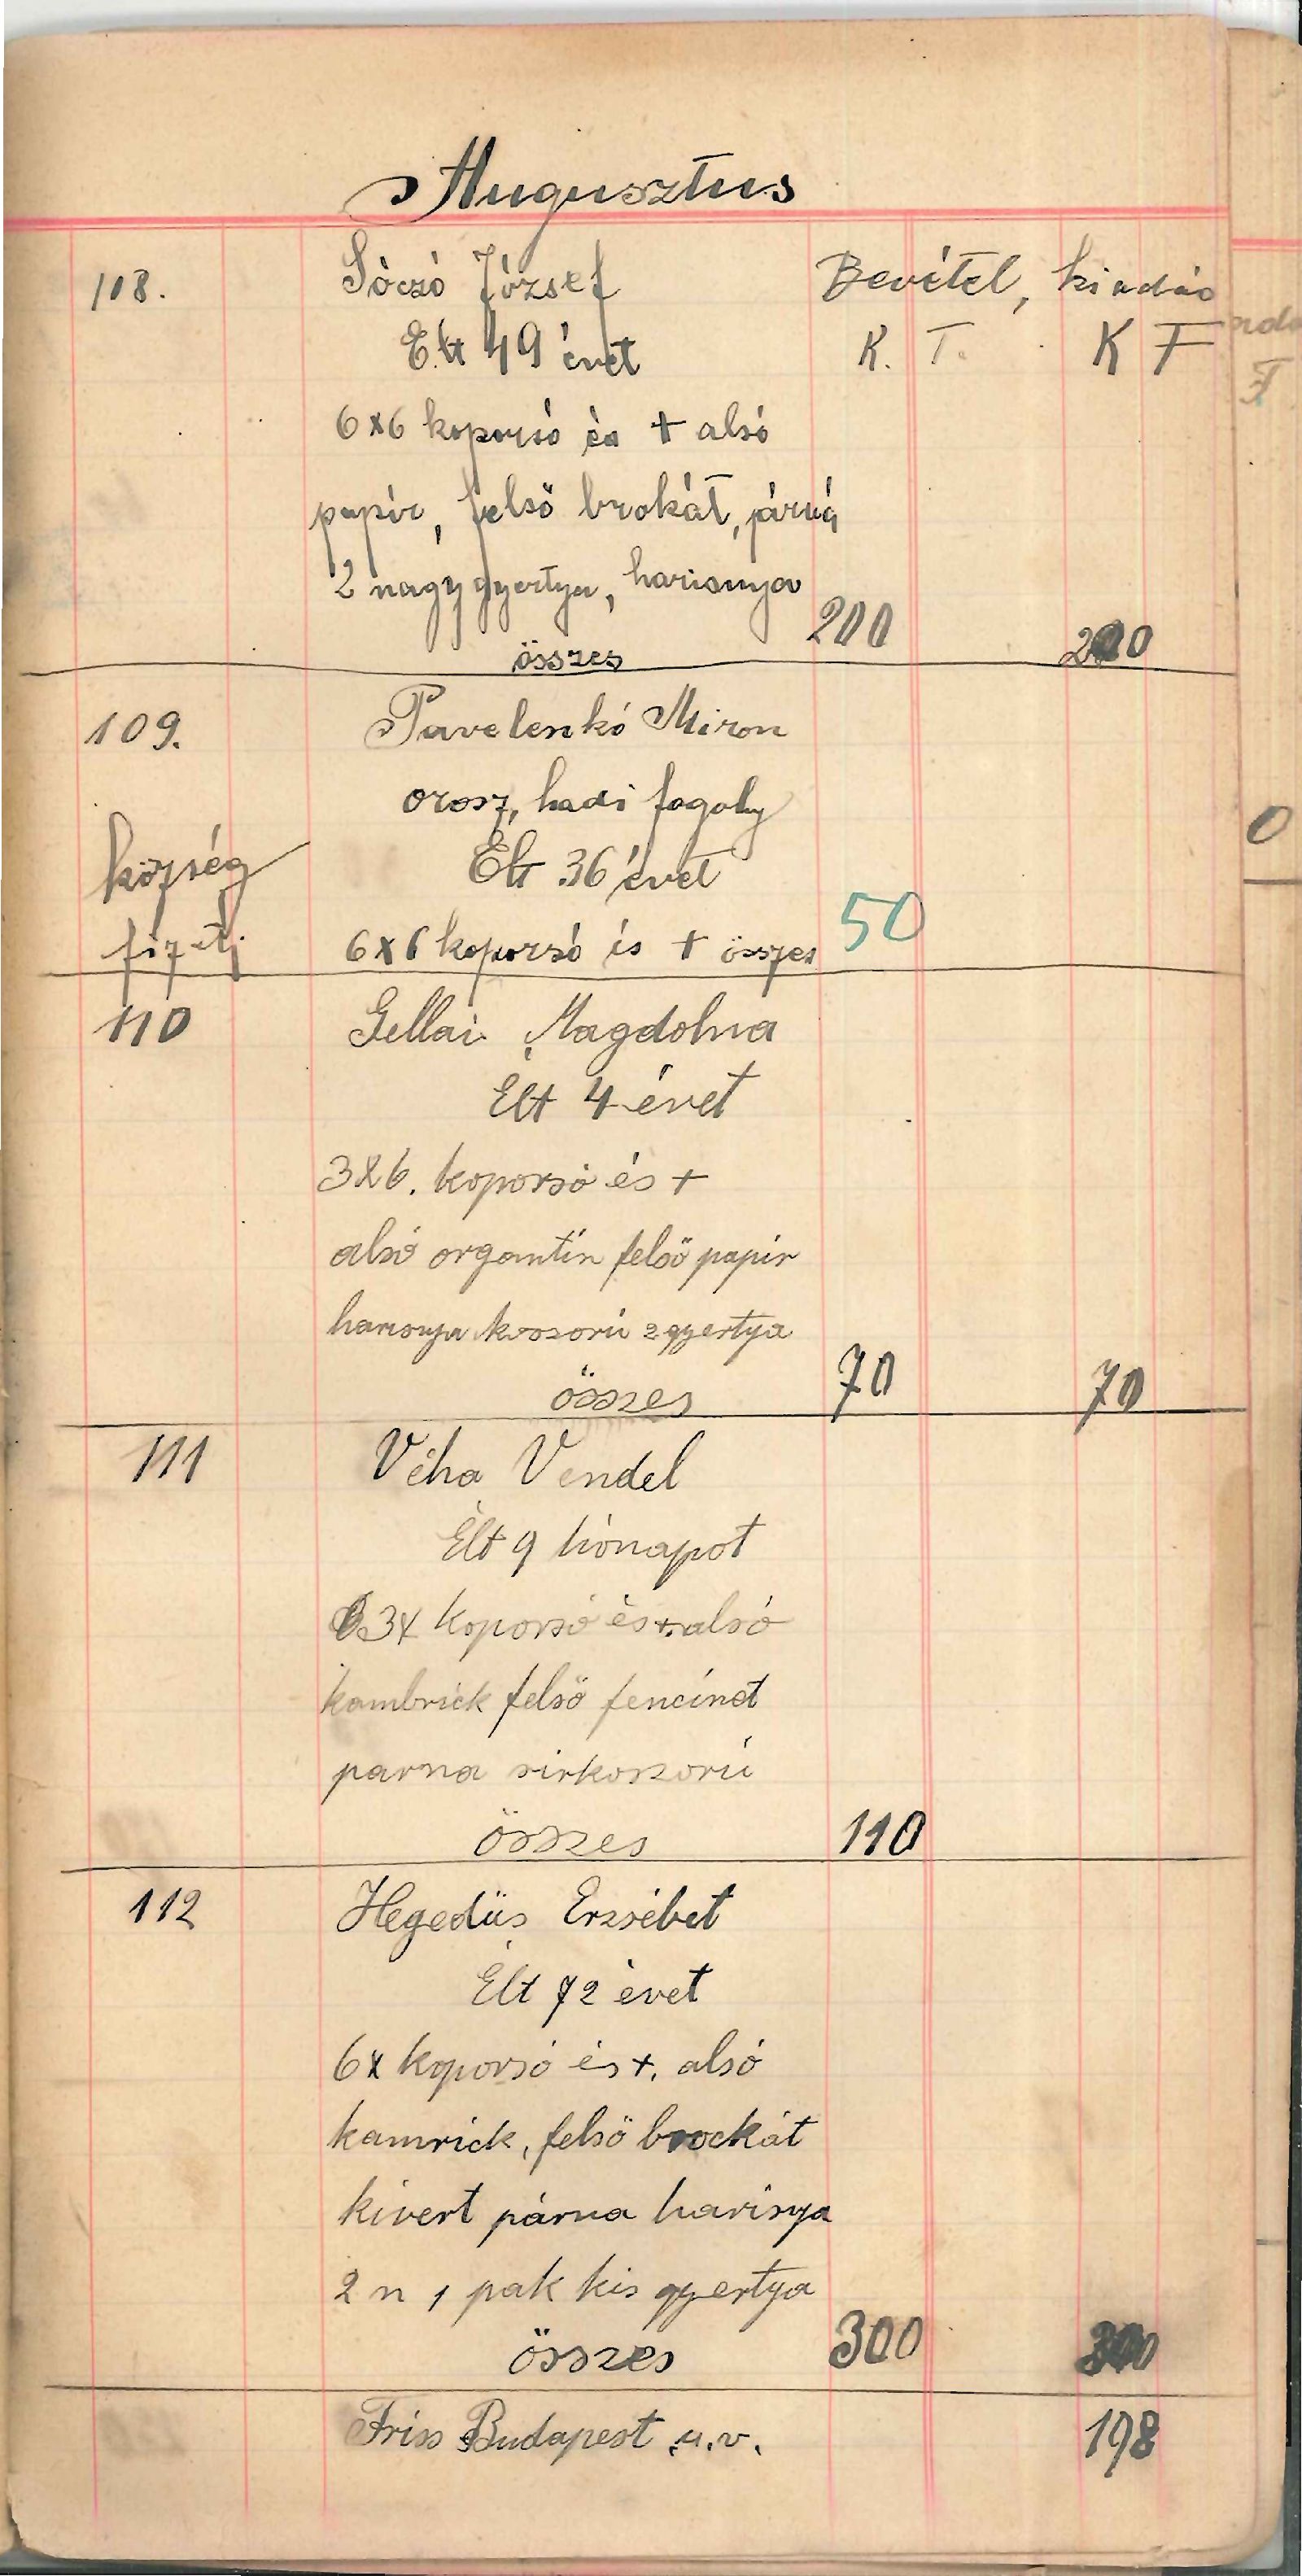 Augusztus
108. Sóczó József Bevétel, kiadás
Élt 49 évet K. T. K F
6x6 koporsó és + alsó
papír, felső brokát, párná
2 nagy gyertya, harisnya
összes 200 200
109. Pavelenkó Miron
orosz, hadi fogoly
község Élt 36 évet
fizeti 6x6 koporsó és + összes 50
110 Gellai Magdolna
Élt 4 évet
3x6. koporsó és +
alsó organtin felső papír
harisnya koszorú 2 gyertya
összes 70 70
111 Véha Vendel
Élt 9 hónapot
3x koporsó és +. alsó
kambrick felső
parna sirkoszorú
összes 110
112 Hegedüs Erzsébet
Élt 72 évet
6x koporsó és +. alsó
kamrick, felsö brockát
kivert párna harisya
2 n 1 pak kis gyertya
összes 300 300
Friss Budapest u.v. 198